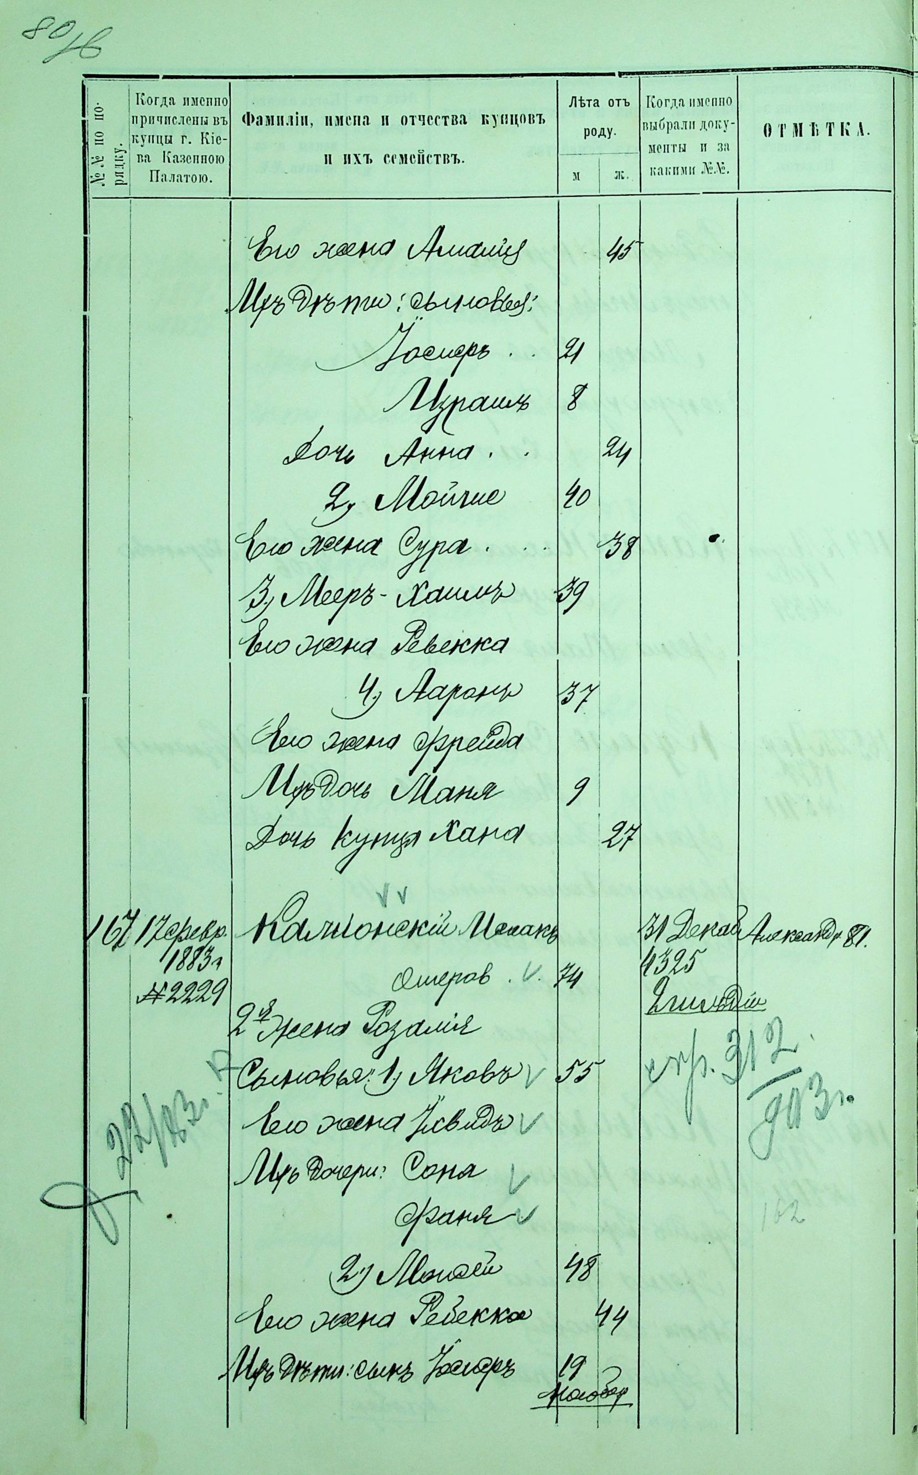 80/76
№№ по по-
рядку.
Когда именно
причислены въ
купцы г. Кіе-
ва Казенною
Палатою.
Фамиліи, имена и отчества купцовъ
и ихъ семействъ.
Лѣта отъ
роду.
м
ж.
Когда именно
выбрали доку-
менты и за
какими №№.
ОТМѢТКА.
Его жена Амалія 45
Ихъ дѣти: сыновья:
Іосифъ 21
Израиль 8
Дочь Анна 24
2) Мойше 40
Его жена Сура 38
3) Мееръ-Хаимъ 39
Его жена Ревекка
4) Ааронъ 37
Его жена Фрейда
Ихъ дочь Маня 9
Дочь купца Хана 27
167 17 февр. Исаакъ 31 Декаб Александр 81.
1883 г. Ошеров 74 4325
№2229 2 гильдіи
2я жена Розалія
Сыновья: 1) Яковъ 55 стр. 312
903 г.
Его жена
22/83 г.
Ихъ дочери: Соня
Фаня 162
2) Моисей 48
Его жена Ревекка 44
Ихъ дѣти: сынъ Іосифъ 19